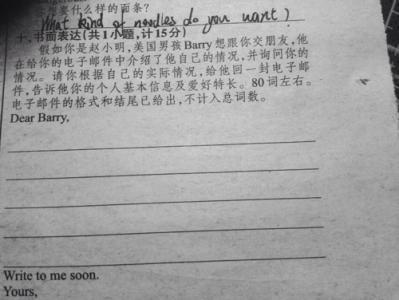 要什么样的面条?
What kind of noodles do you want?
十、书面表达(共1小题,计15分)
假如你是赵小明,美国男孩Barry想跟你交朋友,他
在给你的电子邮件中介绍了他自己的情况,并询问你的
情况。请你根据自己的实际情况,给他回一封电子邮
件,告诉他你的个人基本信息及爱好特长。80词左右。
电子邮件的格式和结尾已给出,不计入总词数。
Dear Barry,
Write to me soon.
Yours,